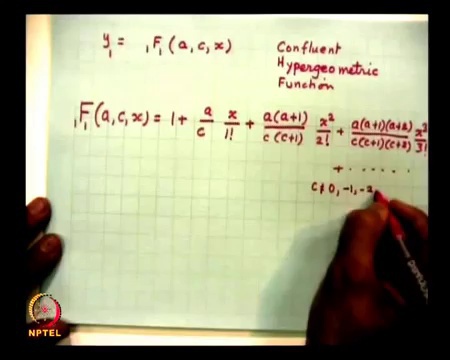 y₁ = ₁F₁(a, c, x)
Confluent
Hypergeometric
Function
₁F₁(a, c, x) = 1 + a/c x/1! + a(a+1)/c(c+1) x²/2! + a(a+1)(a+2)/c(c+1)(c+2) x³/3!
+ . . . . . .
c ≠ 0, -1, -2
NPTEL